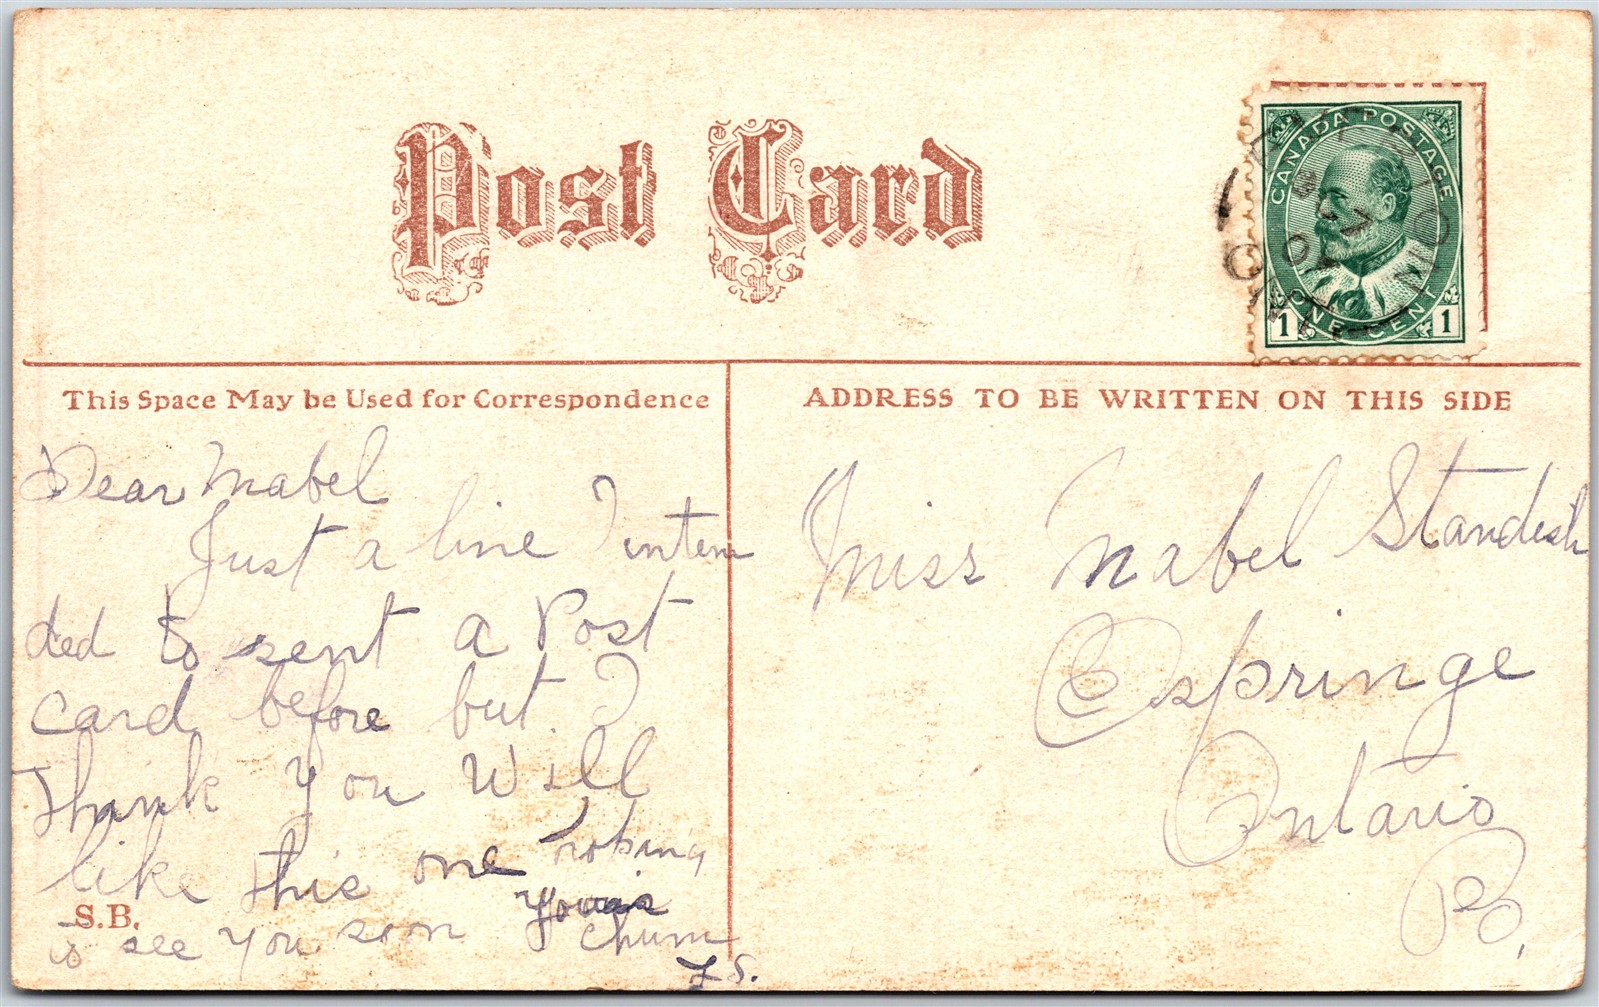 Post Card
CANADA POSTAGE
ONE CENT
1 1
This Space May be Used for Correspondence
ADDRESS TO BE WRITTEN ON THIS SIDE
Dear Mabel
Just a line I inten
ded to sent a Post
card before but I
thank you will
like this one hoping
to see you soon yours
chum
F S.
S.B.
Miss Mabel Standish
Espringe
Ontario
P.O.